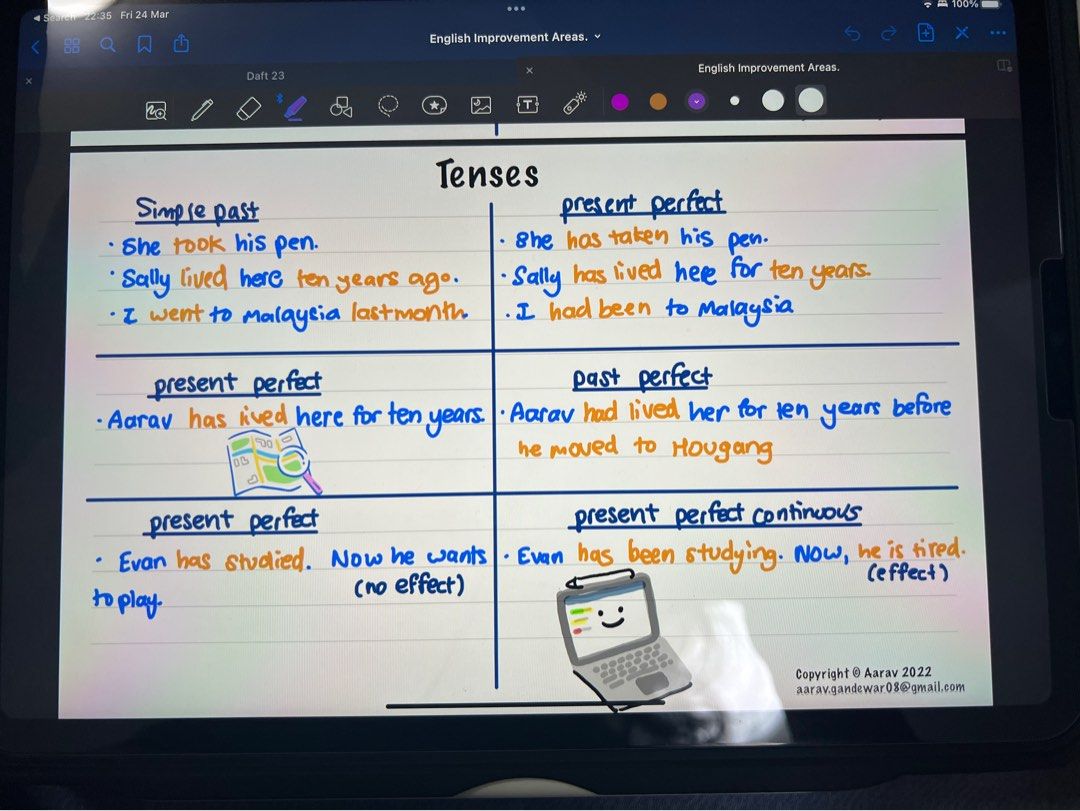 Search 22:35 Fri 24 Mar
100%
English Improvement Areas.
Daft 23
English Improvement Areas.
Tenses
Simple past
· She took his pen.
· Sally lived here ten years ago.
· I went to Malaysia last month.
present perfect
· She has taken his pen.
· Sally has lived here for ten years.
· I had been to Malaysia
present perfect
· Aarav has lived here for ten years.
past perfect
· Aarav had lived her for ten years before
he moved to Hougang
present perfect
· Evan has studied. Now he wants
(no effect)
to play.
present perfect continuous
· Evan has been studying. Now, he is tired.
(effect)
Copyright © Aarav 2022
aarav.gandewar08@gmail.com